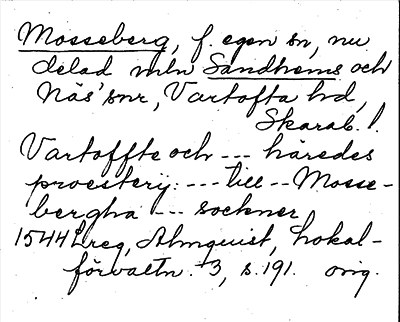 Mosseberg, f. egen sn, nu
delad mln Sandhems och
Näs' snr, Vartofta hd,
Skarab. l.
Vartoffte och --- häredes
proesterij: --- till -- Mosse-
bergha --- sockner
1544 Lreg, Almquist, Lokal-
förvaltn. 3, s. 191. orig.